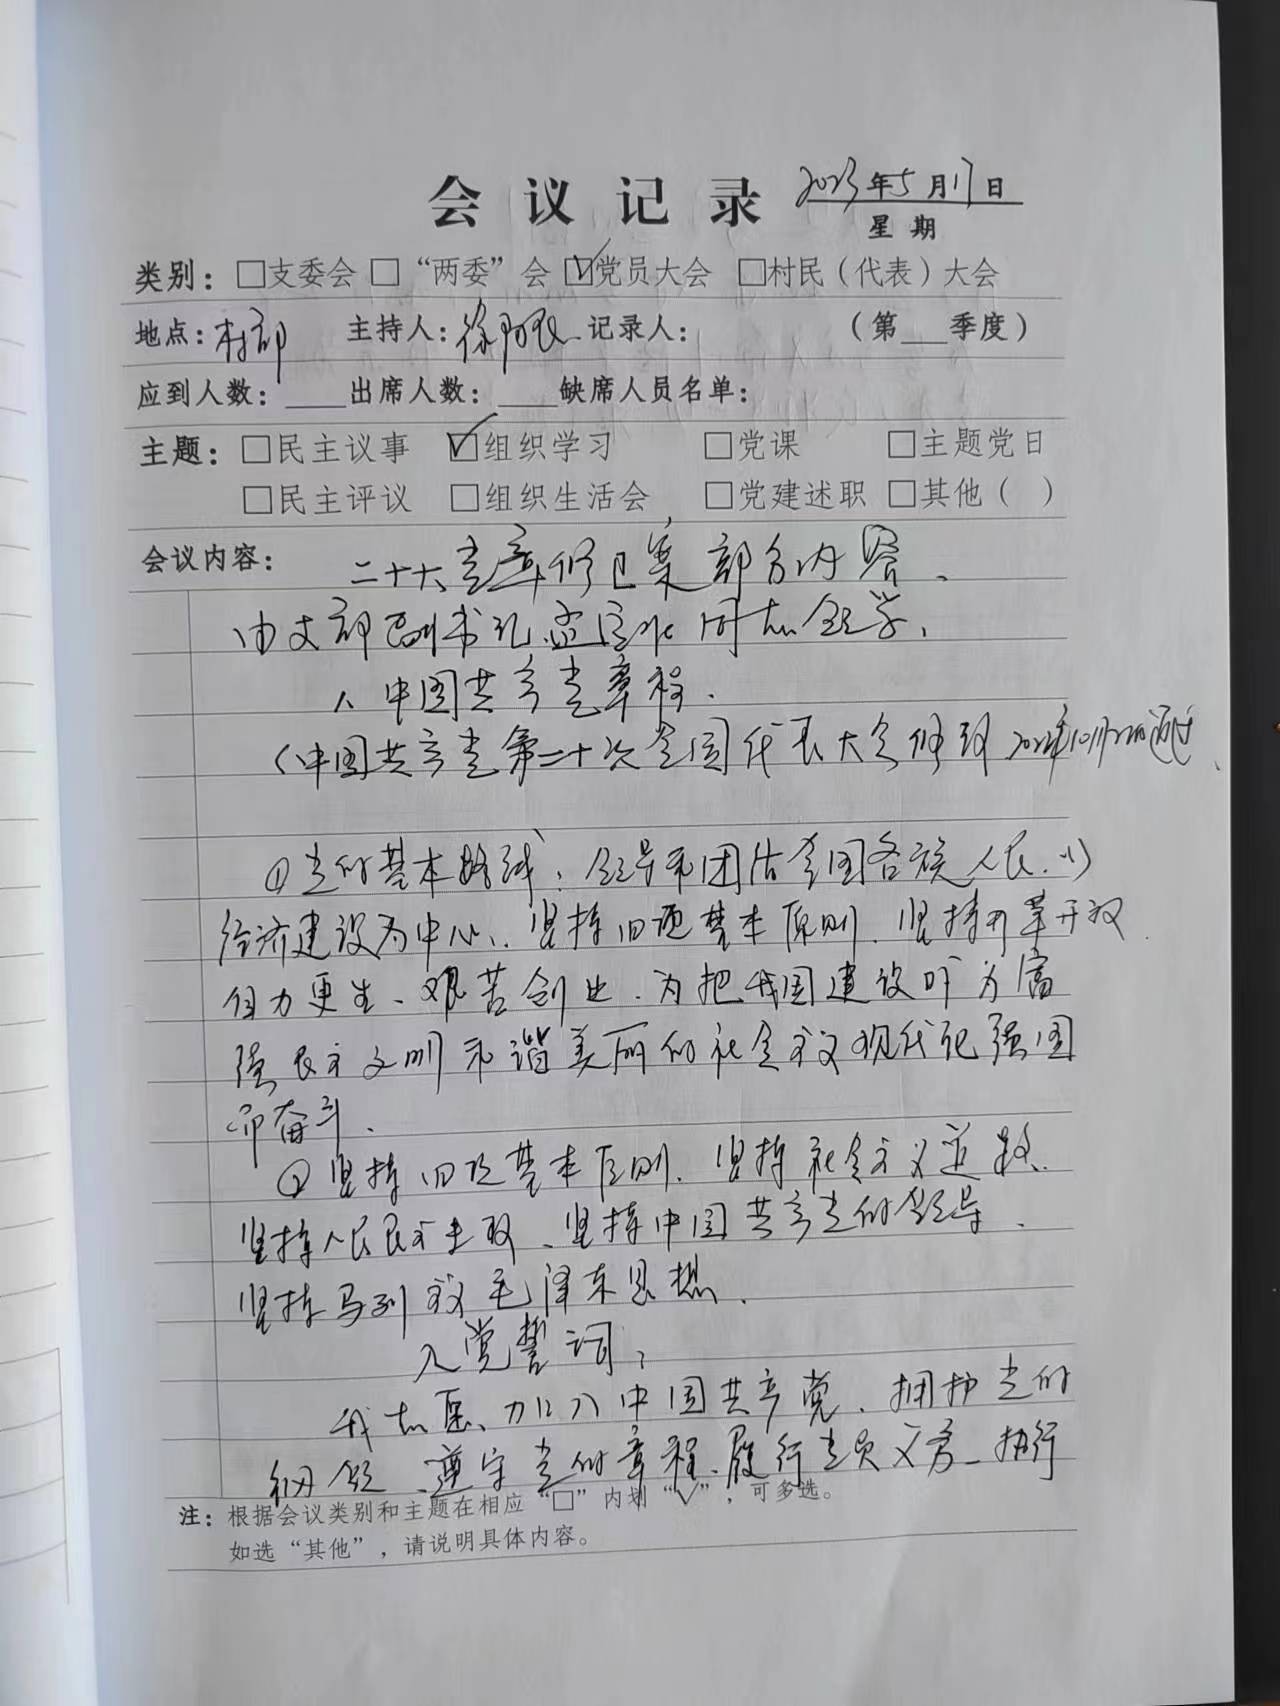 会议记录 2023年5月17日
星期
类别：□支委会 □“两委”会 ☑党员大会 □村民（代表）大会
地点：村部 主持人：徐 记录人： （第 季度）
应到人数： 出席人数： 缺席人员名单：
主题：□民主议事 ☑组织学习 □党课 □主题党日
□民主评议 □组织生活会 □党建述职 □其他（ ）
会议内容： 二十大党章修正案部分内容、
由支部副书记孟 同志领学，
1、中国共产党章程．
（中国共产党第二十次全国代表大会修改 2022年10月22日通过
①党的基本路线：领导和团结全国各族人民．以
经济建设为中心、坚持四项基本原则．坚持改革开放．
自力更生、艰苦创业．为把我国建设成为富
强民主文明和谐美丽的社会主义现代化强国
而奋斗．
②坚持四项基本原则．坚持社会主义道路．
坚持人民民主专政、坚持中国共产党的领导．
坚持马列主义毛泽东思想．
入党誓词：
我志愿加入中国共产党．拥护党的
纲领、遵守党的章程、履行党员义务、执行
注：根据会议类别和主题在相应“□”内划“√”，可多选。
如选“其他”，请说明具体内容。